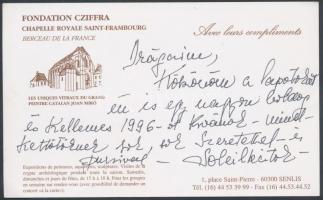 FONDATION CZIFFRA
CHAPELLE ROYALE SAINT-FRAMBOURG
BERCEAU DE LA FRANCE
Avec leurs compliments
Drágáim,
Köszönöm a lapotokat
én is egy nagyon boldog
és Kellemes 1996-ot Kívánok - mind-
Kettőtöknek sok, sok Szeretettel - és
Soleilkétok -
LES UNIQUES VITRAUX DU GRAND
PEINTRE CATALAN JUAN MIRÓ
Expositions de peintures, aquarelles, sculptures. Visites de la
crypte archéologique pendant toute la saison. Samedis,
dimanches et jours de fêtes, de 15 h à 18 h. Pour les groupes
en semaine sur rendez-vous (avec possibilité de demander
un concert à la carte).
1, place Saint-Pierre - 60300 SENLIS
Tél. (16) 44 53 39 99 - Fax (16) 44.53.44.52